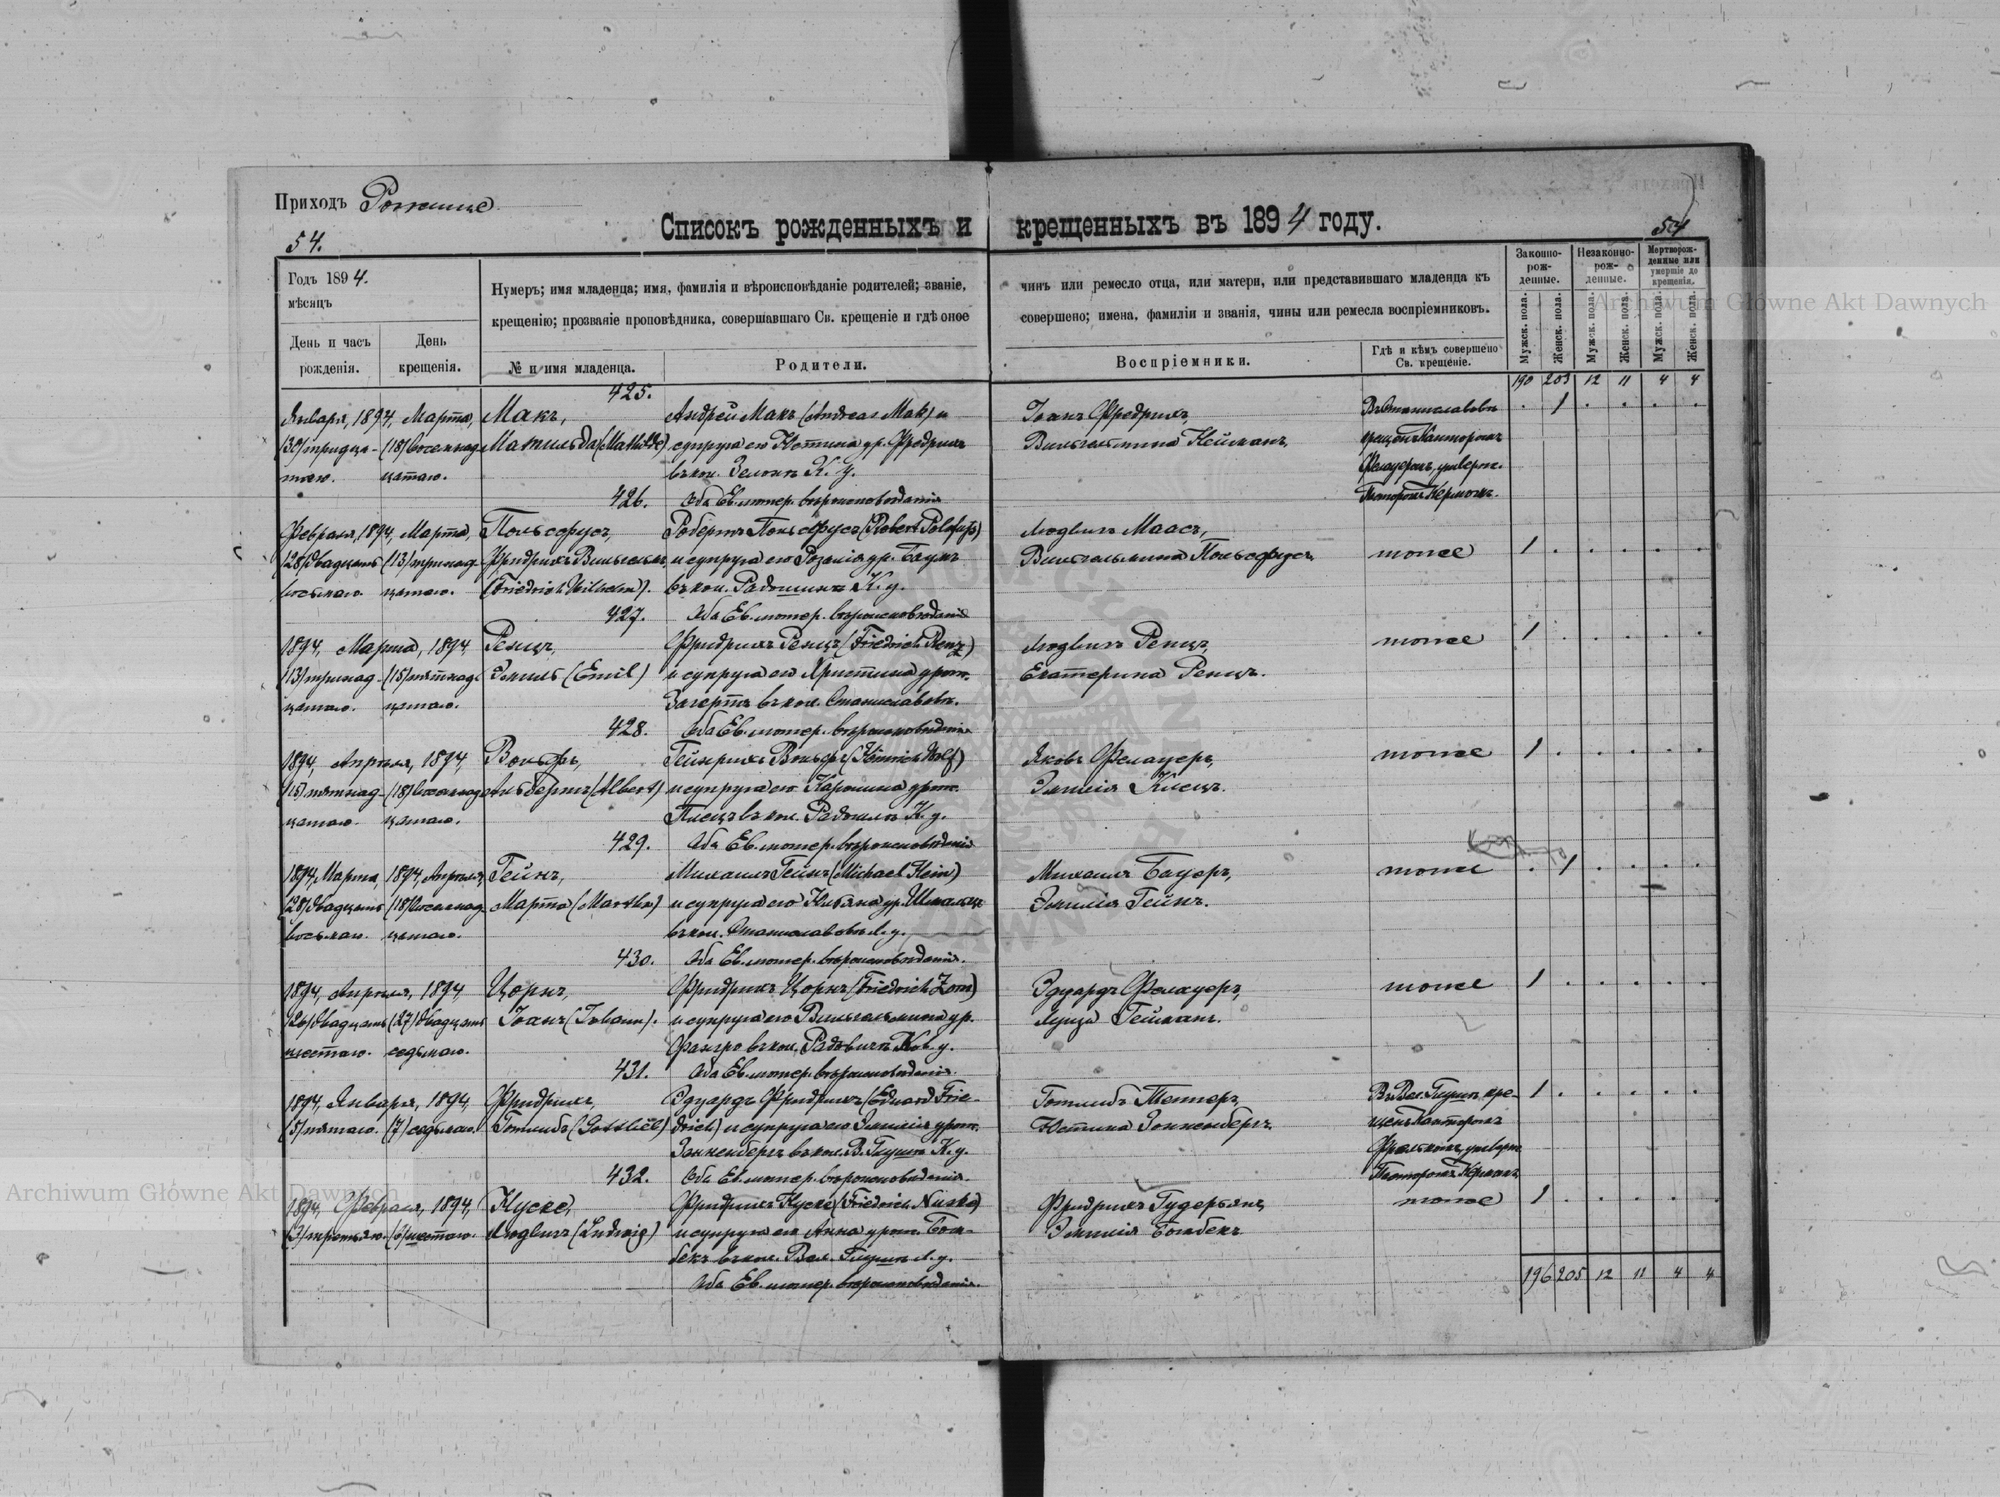 Приходъ Рожище
Списокъ рожденныхъ и крещенныхъ въ 1894 году.
54.
54
Годъ 1894.
мѣсяцъ
День и часъ рожденія.
День крещенія.
Нумеръ; имя младенца; имя, фамилія и вѣроисповѣданіе родителей; званіе,
крещенію; прозваніе проповѣдника, совершавшаго Св. крещеніе и гдѣ оное
№ и имя младенца.
Родители.
чинъ или ремесло отца, или матери, или представившаго младенца къ
совершено; имена, фамиліи и званія, чины или ремесла воспріемниковъ.
Воспріемники.
Гдѣ и кѣмъ совершено
Св. крещеніе.
Законно-рож-денные.
Незаконно-рож-денные.
Мертворож-денные или умершіе до крещенія.
Мужск. пола.
Женск. пола.
Мужск. пола.
Женск. пола.
Мужск. пола.
Женск. пола.
190 203 12 11 4 4
425.
Января, 1894, Марта,
(30) тридца- (18) восемнад-
таго. цатаго.
Макъ,
Матильда (Mathilde)
Андрей Макъ (Andreas Mak) и
супруга его ур. Фридрих
въ кол. К. у.
Оба Ев. лютер. вѣроисповѣданія
Іоанъ Фридрихъ,
Вильгельмина Нейманъ,
Въ Станиславовкѣ
Пасторомъ Керномъ.
. 1 . . . .
426.
Февраля, 1894, Марта,
(28) двадцать (13) тринад-
восьмаго. цатаго.
Польсфусъ,
Фридрихъ Вильгельмъ,
(Friedrich Wilhelm).
Робертъ Польсфусъ (Robert Polsfuss)
и супруга его Розалія ур. Баумъ
въ кол. К. у.
Оба Ев. лютер. вѣроисповѣданія
Людвигъ Маасъ,
Вильгельмина Польсфусъ
тоже
1 . . . . .
427.
1894, Марта, 1894,
(13) тринад- (15) пятнад-
цатаго. цатаго.
Ренцъ,
Эмиль (Emil)
Фридрихъ Ренцъ (Friedrich Renz)
и супруга его Христина урож.
Загертъ въ кол. Станиславовкѣ.
Оба Ев. лютер. вѣроисповѣданія
Людвигъ Ренцъ,
Екатерина Ренцъ.
тоже
1 . . . . .
428.
1894, Апрѣля, 1894,
(15) пятнад- (18) восемнад-
цатаго. цатаго.
Вольфъ,
Альбертъ (Albert)
Гейнрихъ Вольфъ (Heinrich Wolf)
и супруга его Каролина урож.
въ кол. К. у.
Оба Ев. лютер. вѣроисповѣданія
Яковъ Фелауеръ,
Эмилія
тоже
1 . . . . .
429.
1894, Марта, 1894, Апрѣля,
(28) двадцать (18) восемнад-
восьмаго. цатаго.
Гейнъ,
Марта (Martha)
Михаилъ Гейнъ (Michael Hein)
и супруга его ур.
въ кол. Станиславовкѣ Л. у.
Оба Ев. лютер. вѣроисповѣданія.
Михаилъ Бауеръ,
Эмилія Гейнъ.
тоже
. 1 . . . .
430.
1894, Апрѣля, 1894,
(26) двадцать (27) двадцать
шестаго. седьмаго.
Цорнъ,
Іоанъ (Johann).
Фридрихъ Цорнъ (Friedrich Zorn)
и супруга его Вильгельмина ур.
въ кол. у.
Оба Ев. лютер. вѣроисповѣданія.
Эдуардъ Фелауеръ,
Луиза
тоже
1 . . . . .
431.
1894, Января, 1894,
(5) пятаго. (7) седьмаго.
Фридрихъ,
Готлибъ (Gottlieb)
Эдуардъ Фридрихъ (Eduard Frie-
drich) и супруга его Эмилія урож.
Зоненбергъ въ кол. В. Глушѣ К. у.
Оба Ев. лютер. вѣроисповѣданія.
Готлибъ
Юстина Зонненбергъ.
Въ Вел. Глушѣ кре-
щенъ Канторомъ
Пасторомъ
1 . . . . .
432.
1894, Февраля, 1894,
(3) третьяго. (6) шестаго.
Нуске,
Людвигъ (Ludwig)
Фридрихъ Нуске (Friedrich Nuske)
и супруга его Анна урож. Бом-
бекъ въ кол. Вел. Глушѣ Л. у.
Оба Ев. лютер. вѣроисповѣданія.
Фридрихъ Гудерьянъ,
Эмилія Бомбекъ
тоже
1 . . . . .
196 205 12 11 4 4
Archiwum Główne Akt Dawnych
Archiwum Główne Akt Dawnych